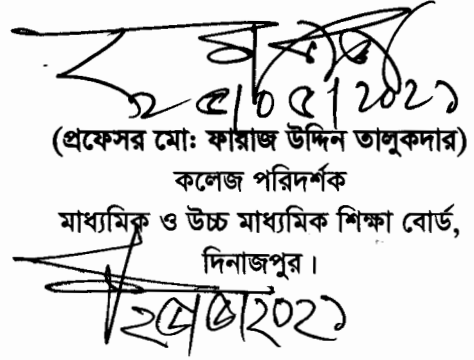 ২৫/০৫/২০২১
(প্রফেসর মো: ফারাজ উদ্দিন তালুকদার)
কলেজ পরিদর্শক
মাধ্যমিক ও উচ্চ মাধ্যমিক শিক্ষা বোর্ড,
দিনাজপুর।